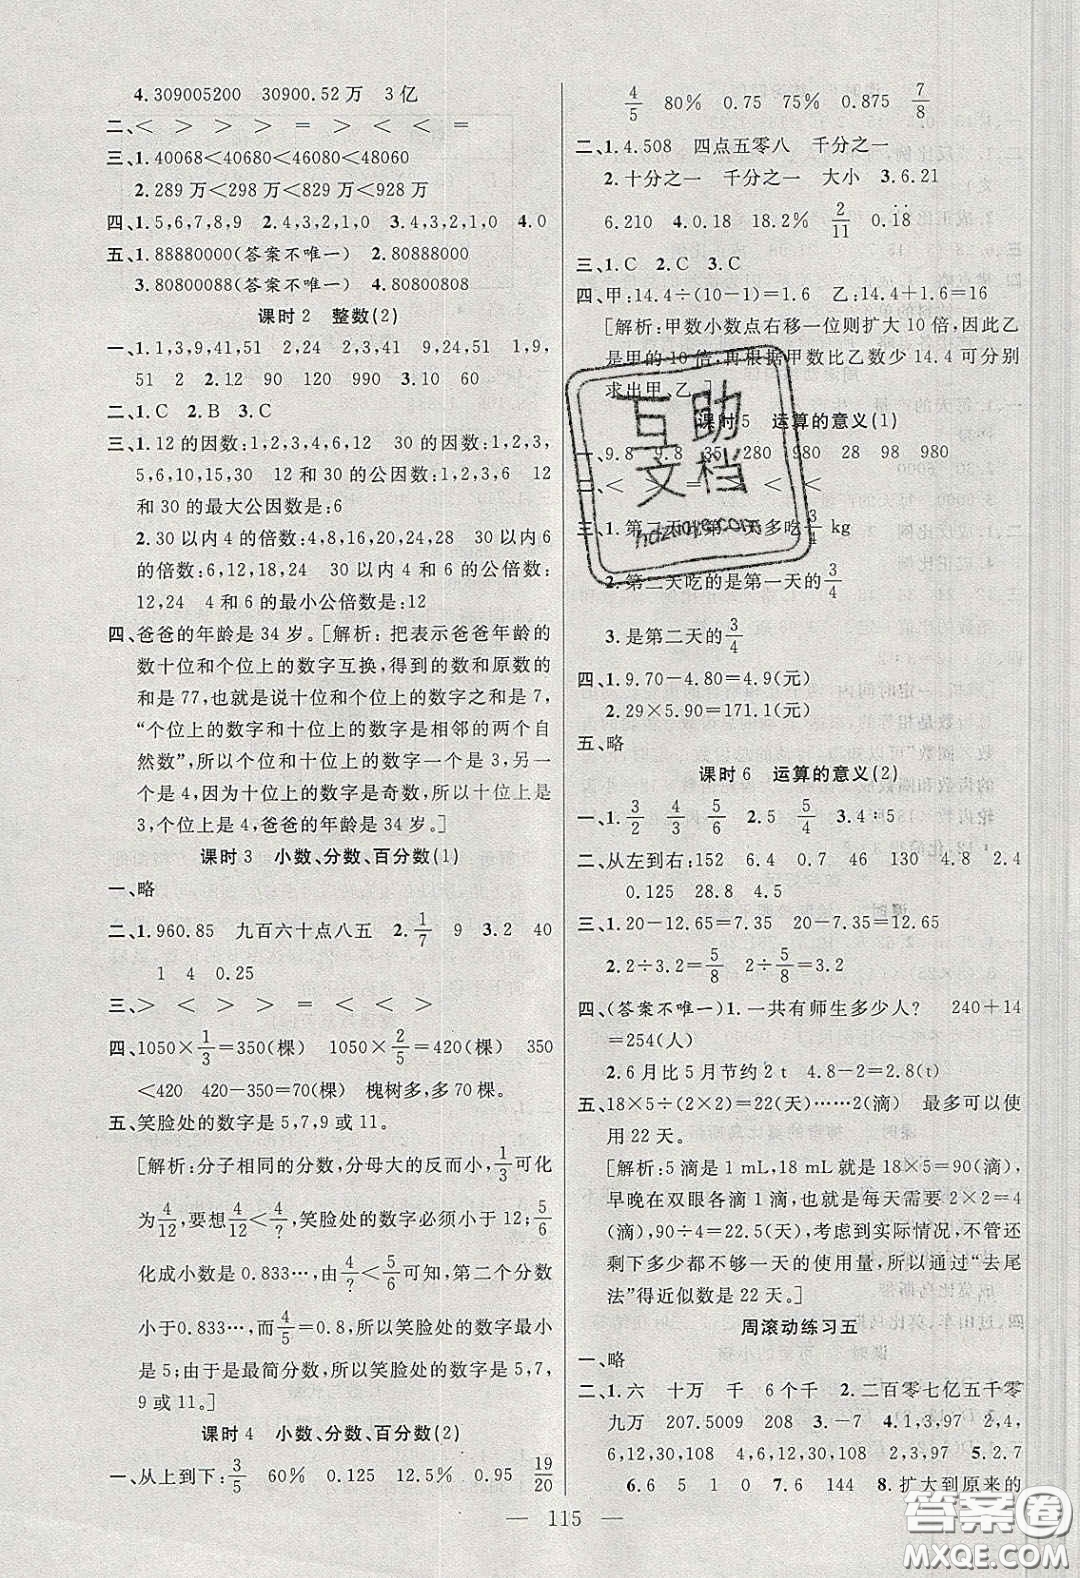 4.309005200 30900.52万 3亿
二、＜ ＞ ＞ ＞ ＝ ＞ ＜ ＜ ＝
三、1.40068＜40680＜46080＜48060
2.289万＜298万＜829万＜928万
四、1.5,6,7,8,9 2.4,3,2,1,0 3.4,3,2,1,0 4.0
五、1.88880000(答案不唯一) 2.80888000
3.80800088(答案不唯一) 4.80800808
课时2 整数(2)
一、1.1,3,9,41,51 2,24 2,41 9,24,51 1,9,
51 2 2.12 90 120 990 3.1 2
二、1.C 2.B 3.C
三、1.12的因数:1,2,3,4,6,12 30的因数:1,2,3,
5,6,10,15,30 12和30的公因数:1,2,3,6 12
和30的最大公因数是:6
2.30以内4的倍数:4,8,16,20,24,28 30以内6
的倍数:6,12,18,24 30以内4和6的公倍数:
12,24 4和6的最小公倍数是:12
四、爸爸的年龄是34岁。[解析:把表示爸爸年龄的
数十位和个位上的数字互换,得到的数和原数的
和是77,也就是说十位和个位上的数字之和是7,
“个位上的数字和十位上的数字是相邻的两个自
然数”,所以个位和十位上的数字一个是3,另一
个是4,因为十位上的数字是奇数,所以十位上是
3,个位上是4,爸爸的年龄是34岁。]
课时3 小数、分数、百分数(1)
一、略
二、1.960.85 九百六十点八五 2.1/7 9 3.2 40
1 4 0.25
三、＞ ＜ ＞ ＞ ＝ ＜ ＜ ＞
四、1050×1/3＝350(棵) 1050×2/5＝420(棵) 350
＜420 420－350＝70(棵) 槐树多,多70棵。
五、笑脸处的数字是5,7,9或11。
[解析:分子相同的分数,分母大的反而小,1/3可化
为4/12,要想4/12＜4/?,笑脸处的数字必须小于12;5/6
化成小数是0.833…,由4/?＜5/6可知,第二个分数
小于0.833…,4/5＝0.8＜0.833…,笑脸处的数字最小
是5;由于是最简分数,所以笑脸处的数字是5,7,
9或11。]
课时4 小数、分数、百分数(2)
一、从上到下:3/5 60% 0.125 12.5% 0.95 19/20
4/5 80% 0.75 75% 0.875 7/8
二、1.4.508 四点五零八 千分之一
2.十分之一 千分之一 大小 3.6.21
6.210 4.0.18 18.2% 2/11 0.1̇8̇
三、1.C 2.C 3.C
四、甲:14.4÷(10－1)＝1.6 乙:14.4＋1.6＝16
[解析:甲数小数点右移一位则扩大10倍,因此乙
是甲的10倍,再根据甲数比乙数少14.4可分别
求出甲、乙。]
课时5 运算的意义(1)
一、9.8 9.8 35 280 980 28 98 980
＜ ＝ ＜
三、1.第二天比第一天多吃3/4 kg
2.第二天吃的是第一天的3/4
3.是第二天的3/4
四、1.9.70－4.80＝4.9(元)
2.29×5.90＝171.1(元)
五、略
课时6 运算的意义(2)
一、1.3/2 4/3 5/6 2.5 5/4 3.4∶5
二、从左到右:152 6.4 0.7 46 130 4.8 2.4
0.125 28.8 4.5
三、1.20－12.65＝7.35 20－7.35＝12.65
2.2÷3.2＝5/8 2÷5/8＝3.2
四、(答案不唯一)1.一共有师生多少人? 240＋14
＝254(人)
2.6月比5月节约2 t 4.8－2＝2.8(t)
五、18×5÷(2×2)＝22(天)……2(滴) 最多可以使
用22天。
[解析:5滴是1 mL,18 mL就是18×5＝90(滴),
早晚在双眼各滴1滴,也就是每天需要2×2＝4
(滴),90÷4＝22.5(天),考虑到实际情况,不管还
剩下多少都不够一天的使用量,所以通过“去尾
法”得近似数是22天。]
周滚动练习五
一、略
二、1.六 十万 千 6个千 2.二百零七亿五千零
九万 207.5009 208 3.－7 4.1,3,97 2,4,
6,12,30,108 6,12,30,108 2,3,97 5.2,7
6.6 5 1 0 7.6 144 8.扩大到原来的
115
互助
文档
hdzuoye.com
答案圈
MXQE.COM